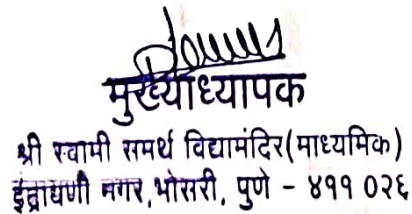 मुख्याध्यापक
श्री स्वामी समर्थ विद्यामंदिर(माध्यमिक)
इंद्रायणी नगर, भोसरी, पुणे - ४११ ०२६